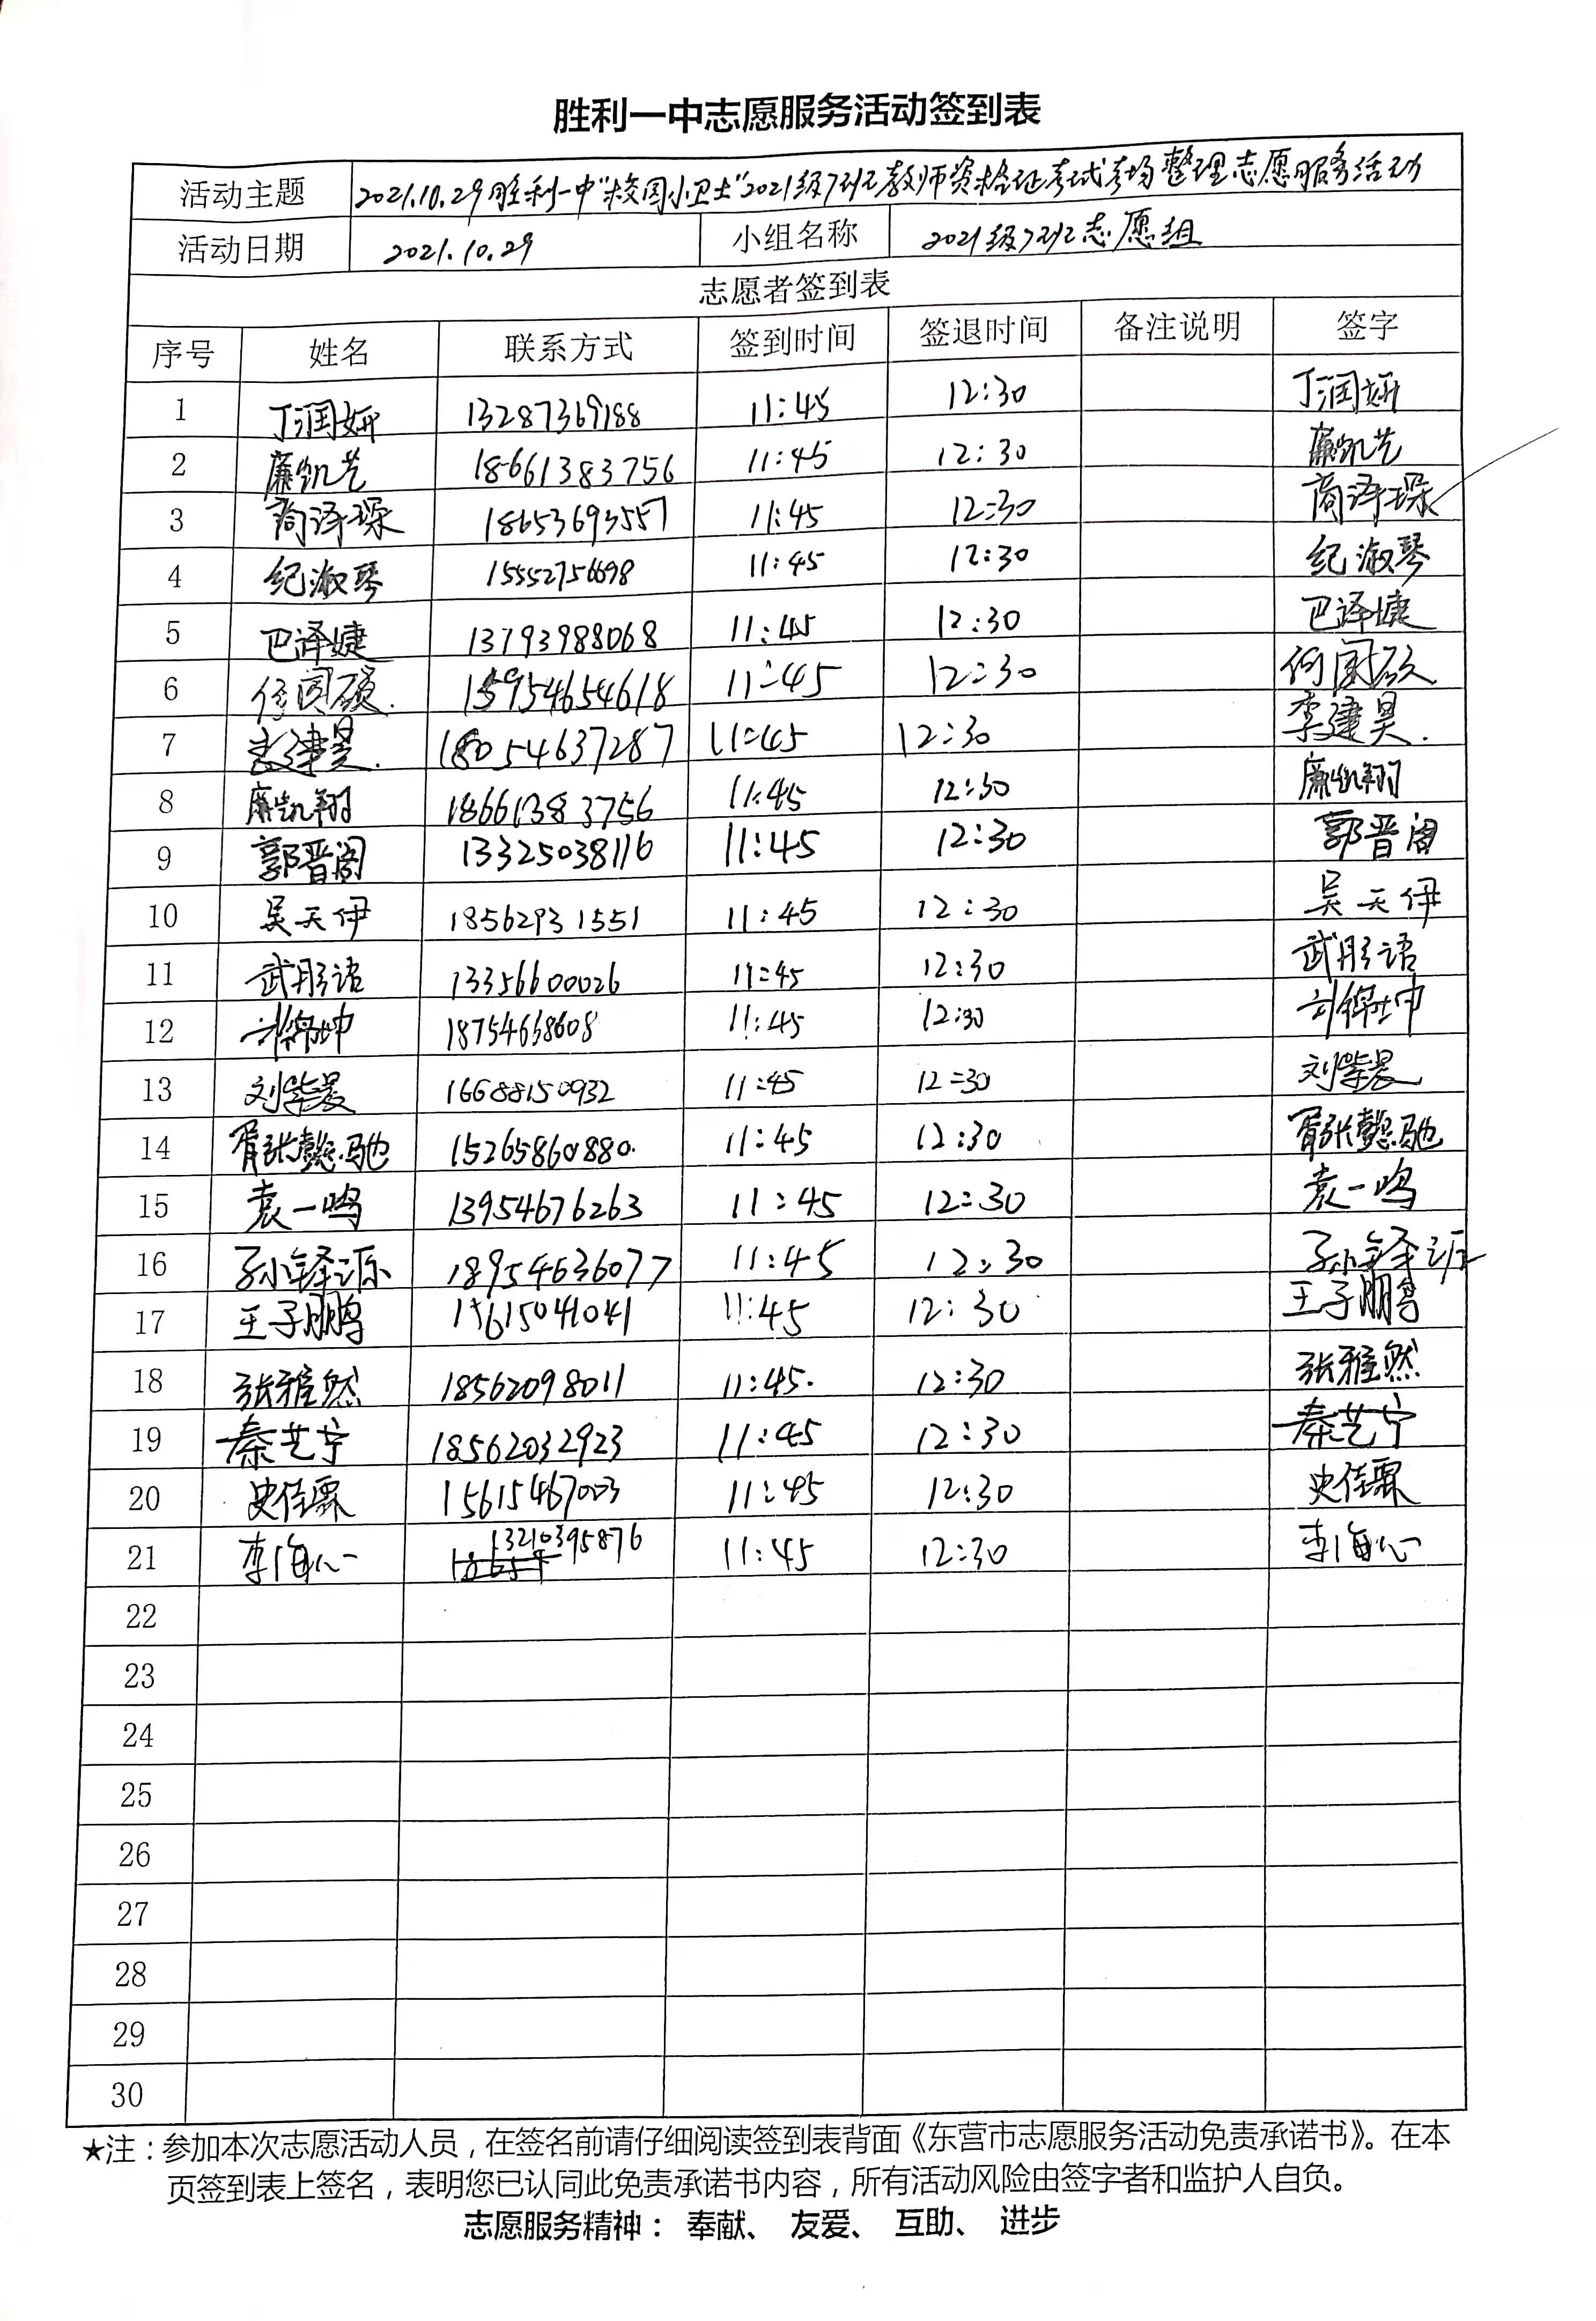 胜利一中志愿服务活动签到表
活动主题 2021.10.29胜利一中"校园小卫士"2021级7班教师资格证考试考场整理志愿服务活动
活动日期 2021.10.29 小组名称 2021级7班志愿组
志愿者签到表
序号 姓名 联系方式 签到时间 签退时间 备注说明 签字
1 丁润妍 13287369188 11:45 12:30 丁润妍
2 廉凯艺 18661383756 11:45 12:30 廉凯艺
3 商泽琛 18653693557 11:45 12:30 商泽琛
4 纪淑琴 15552756698 11:45 12:30 纪淑琴
5 巴泽婕 13793988068 11:45 12:30 巴泽婕
6 15954654618 11:45 12:30
7 李建昊. 18054637287 11:45 12:30 李建昊.
8 廉凯翔 18661383756 11:45 12:30 廉凯翔
9 郭晋阁 13325038116 11:45 12:30 郭晋阁
10 吴天伊 18562931551 11:45 12:30 吴天伊
11 武彤语 13356600026 11:45 12:30 武彤语
12 刘锦坤 18754668608 11:45 12:30 刘锦坤
13 刘紫晨 16688150932 11:45 12:30 刘紫晨
14 胥张懿驰 15265860880. 11:45 12:30 胥张懿驰
15 袁一鸣 13954676263 11:45 12:30 袁一鸣
16 孙铎源 18954636077 11:45 12:30 孙铎源
17 王子鹏 15615041041 11:45 12:30 王子鹏
18 张雅然 18562098011 11:45. 12:30 张雅然
19 秦艺宁 18562032923 11:45 12:30 秦艺宁
20 史佳霖 15615467003 11:45 12:30 史佳霖
21 李海心 13210395876 11:45 12:30 李海心
22
23
24
25
26
27
28
29
30
★注：参加本次志愿活动人员，在签名前请仔细阅读签到表背面《东营市志愿服务活动免责承诺书》。在本
页签到表上签名，表明您已认同此免责承诺书内容，所有活动风险由签字者和监护人自负。
志愿服务精神： 奉献、 友爱、 互助、 进步